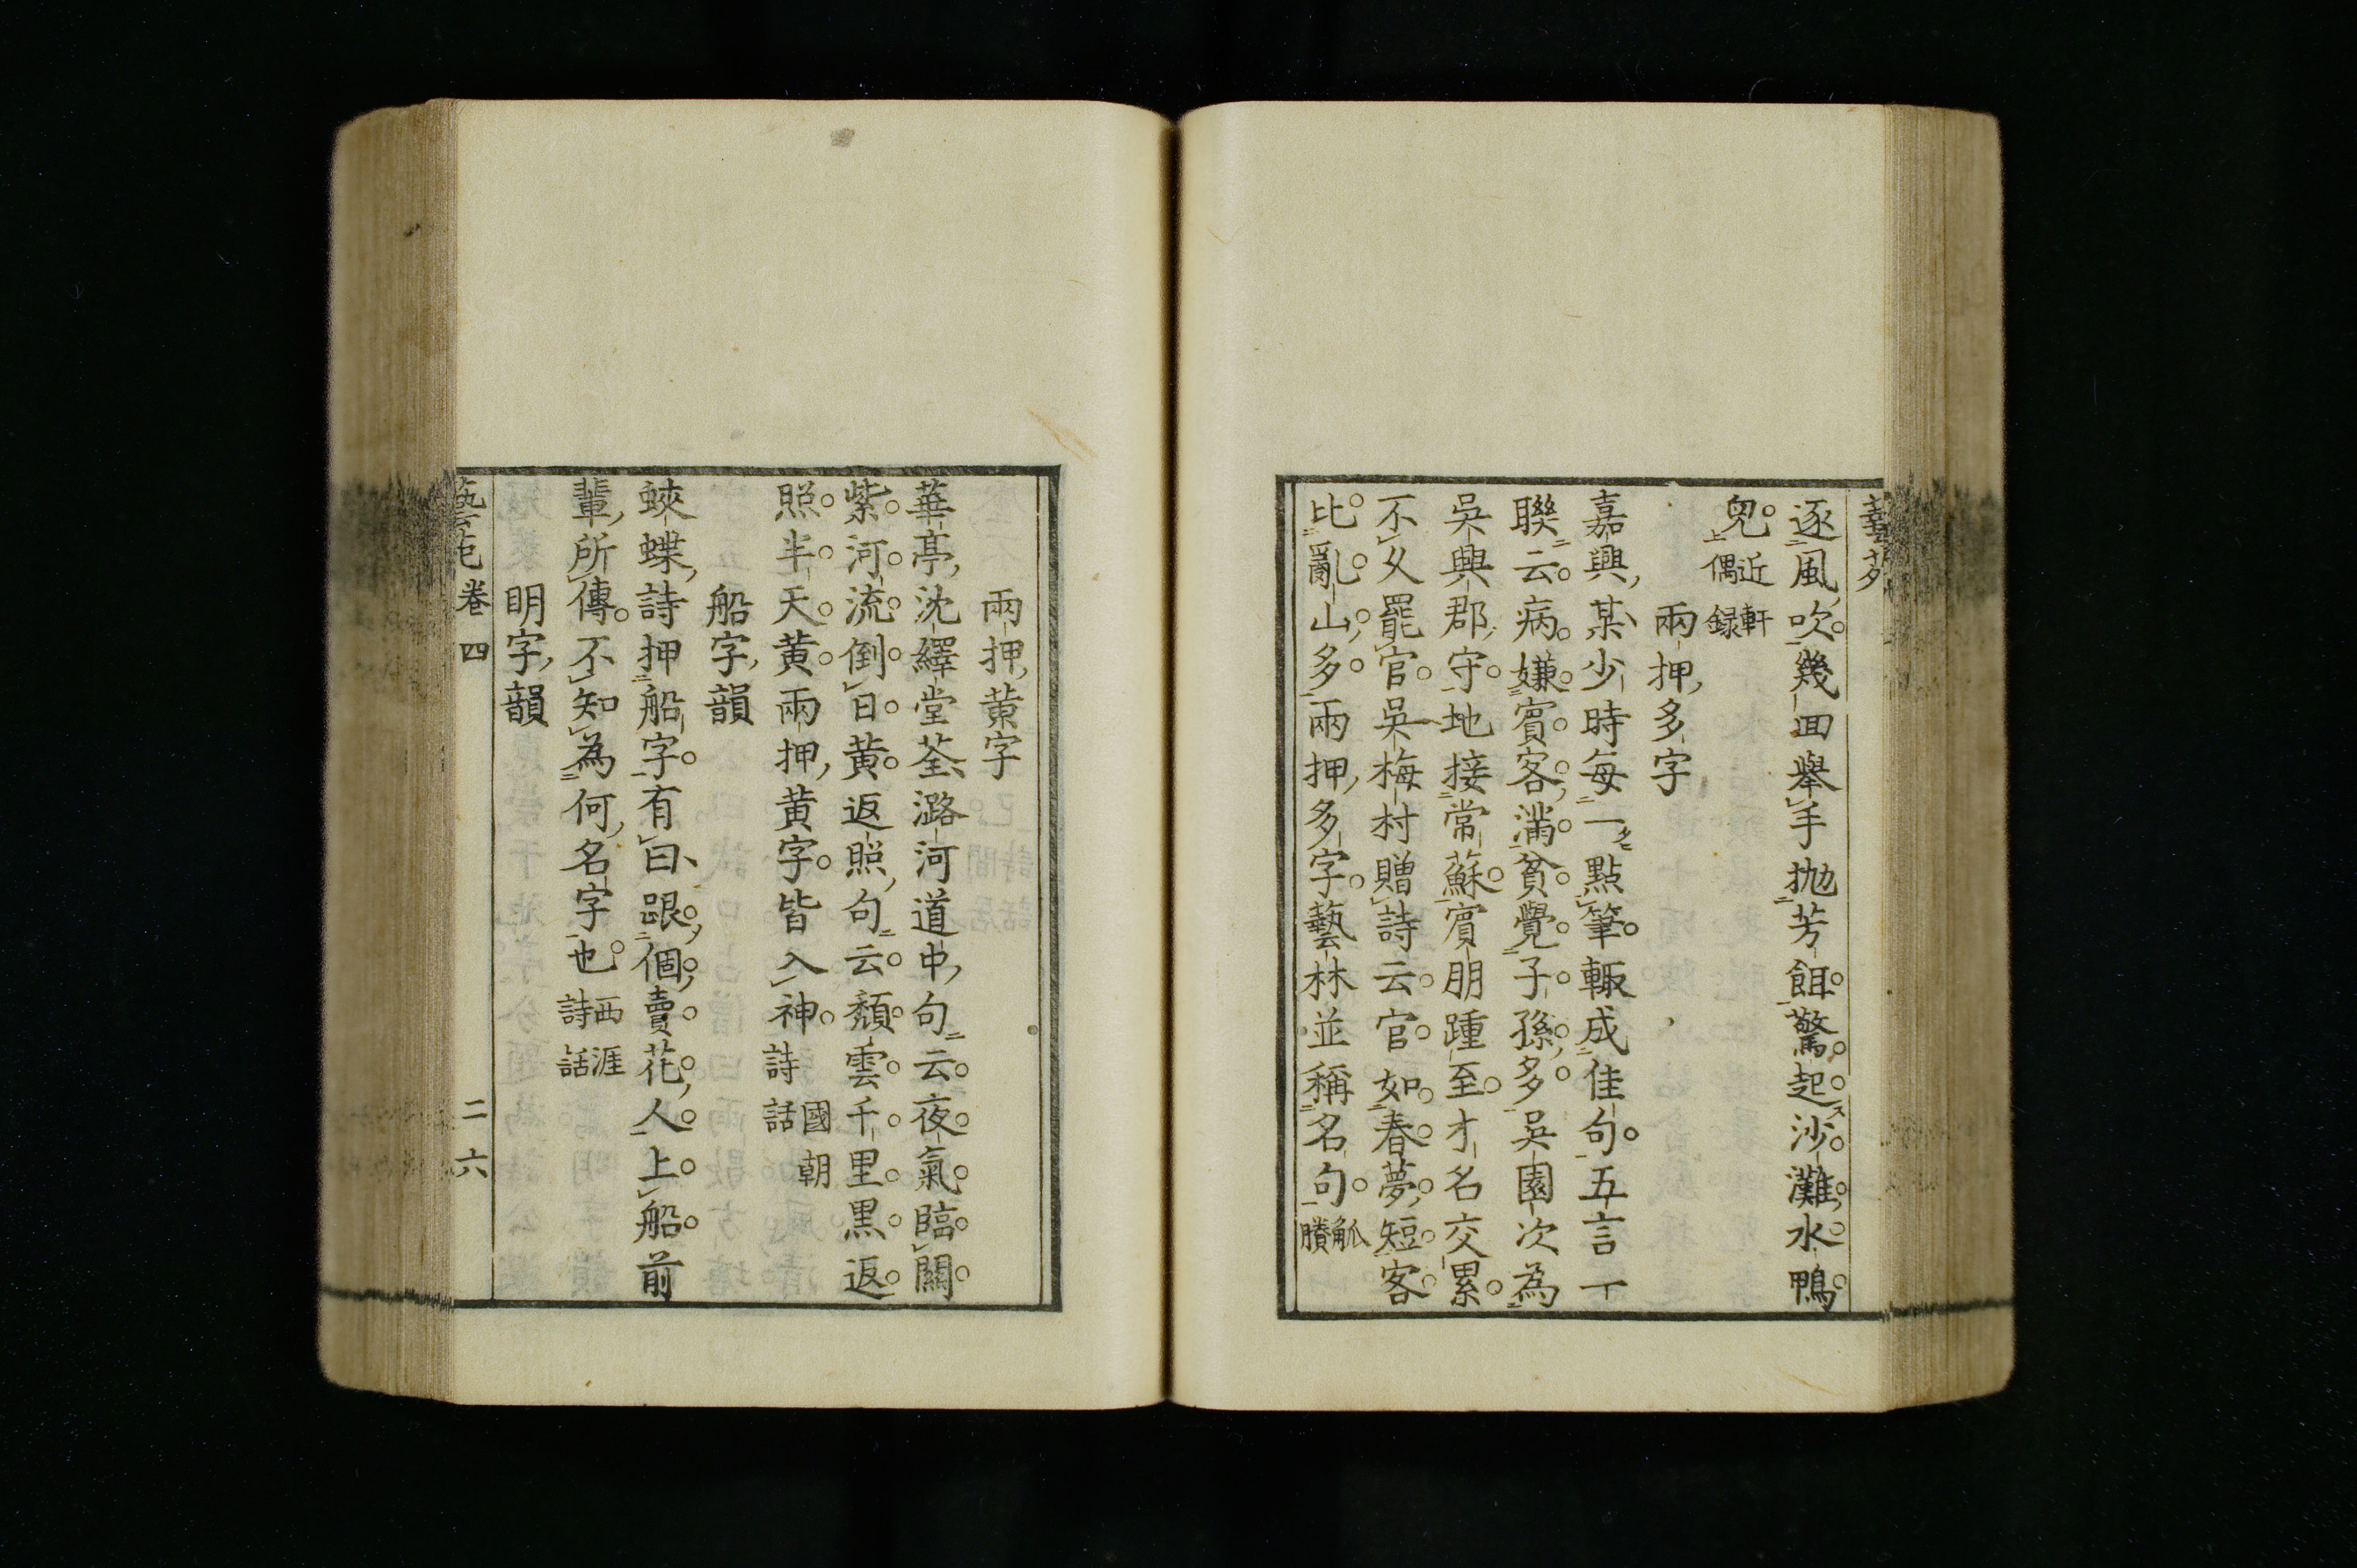 逐風吹幾回舉手拋芳餌驚起沙灘水鴨
兒近軒偶録
兩押多字
嘉興某少時每一點筆輙成佳句五言一
聯云病嫌賓客滿貧覺子孫多吳園次為
吳興郡守地接常蘇賓朋踵至才名交累
不久罷官吳梅村贈詩云官如春夢短客
比亂山多兩押多字藝林並稱名句觚賸
兩押黄字
華亭沈繹堂荃潞河道中句云夜氣臨關
紫河流倒日黄返照句云頽雲千里黒返
照半天黄兩押黄字皆入神國朝詩話
船字韻
蛺蝶詩押船字有曰跟個賣花人上船前
輩所傳不知為何名字也西涯詩話
明字韻
藝苑卷四 二六